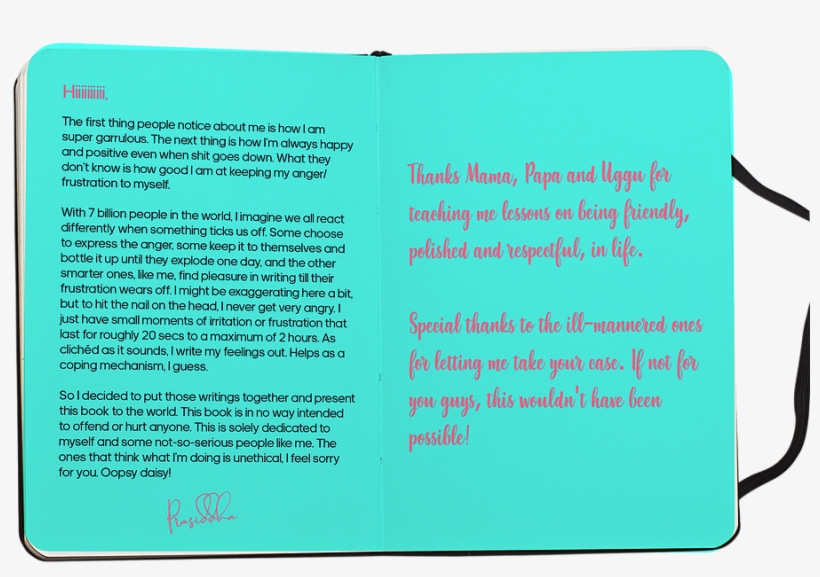 Hiiiiiiiii,
The first thing people notice about me is how I am
super garrulous. The next thing is how I'm always happy
and positive even when shit goes down. What they
don't know is how good I am at keeping my anger/
frustration to myself.
With 7 billion people in the world, I imagine we all react
differently when something ticks us off. Some choose
to express the anger, some keep it to themselves and
bottle it up until they explode one day, and the other
smarter ones, like me, find pleasure in writing till their
frustration wears off. I might be exaggerating here a bit,
but to hit the nail on the head, I never get very angry. I
just have small moments of irritation or frustration that
last for roughly 20 secs to a maximum of 2 hours. As
clichéd as it sounds, I write my feelings out. Helps as a
coping mechanism, I guess.
So I decided to put those writings together and present
this book to the world. This book is in no way intended
to offend or hurt anyone. This is solely dedicated to
myself and some not-so-serious people like me. The
ones that think what I'm doing is unethical, I feel sorry
for you. Oopsy daisy!
Prasiddha
Thanks Mama, Papa and Uggu for
teaching me lessons on being friendly,
polished and respectful, in life.
Special thanks to the ill-mannered ones
for letting me take your case. If not for
you guys, this wouldn't have been
possible!